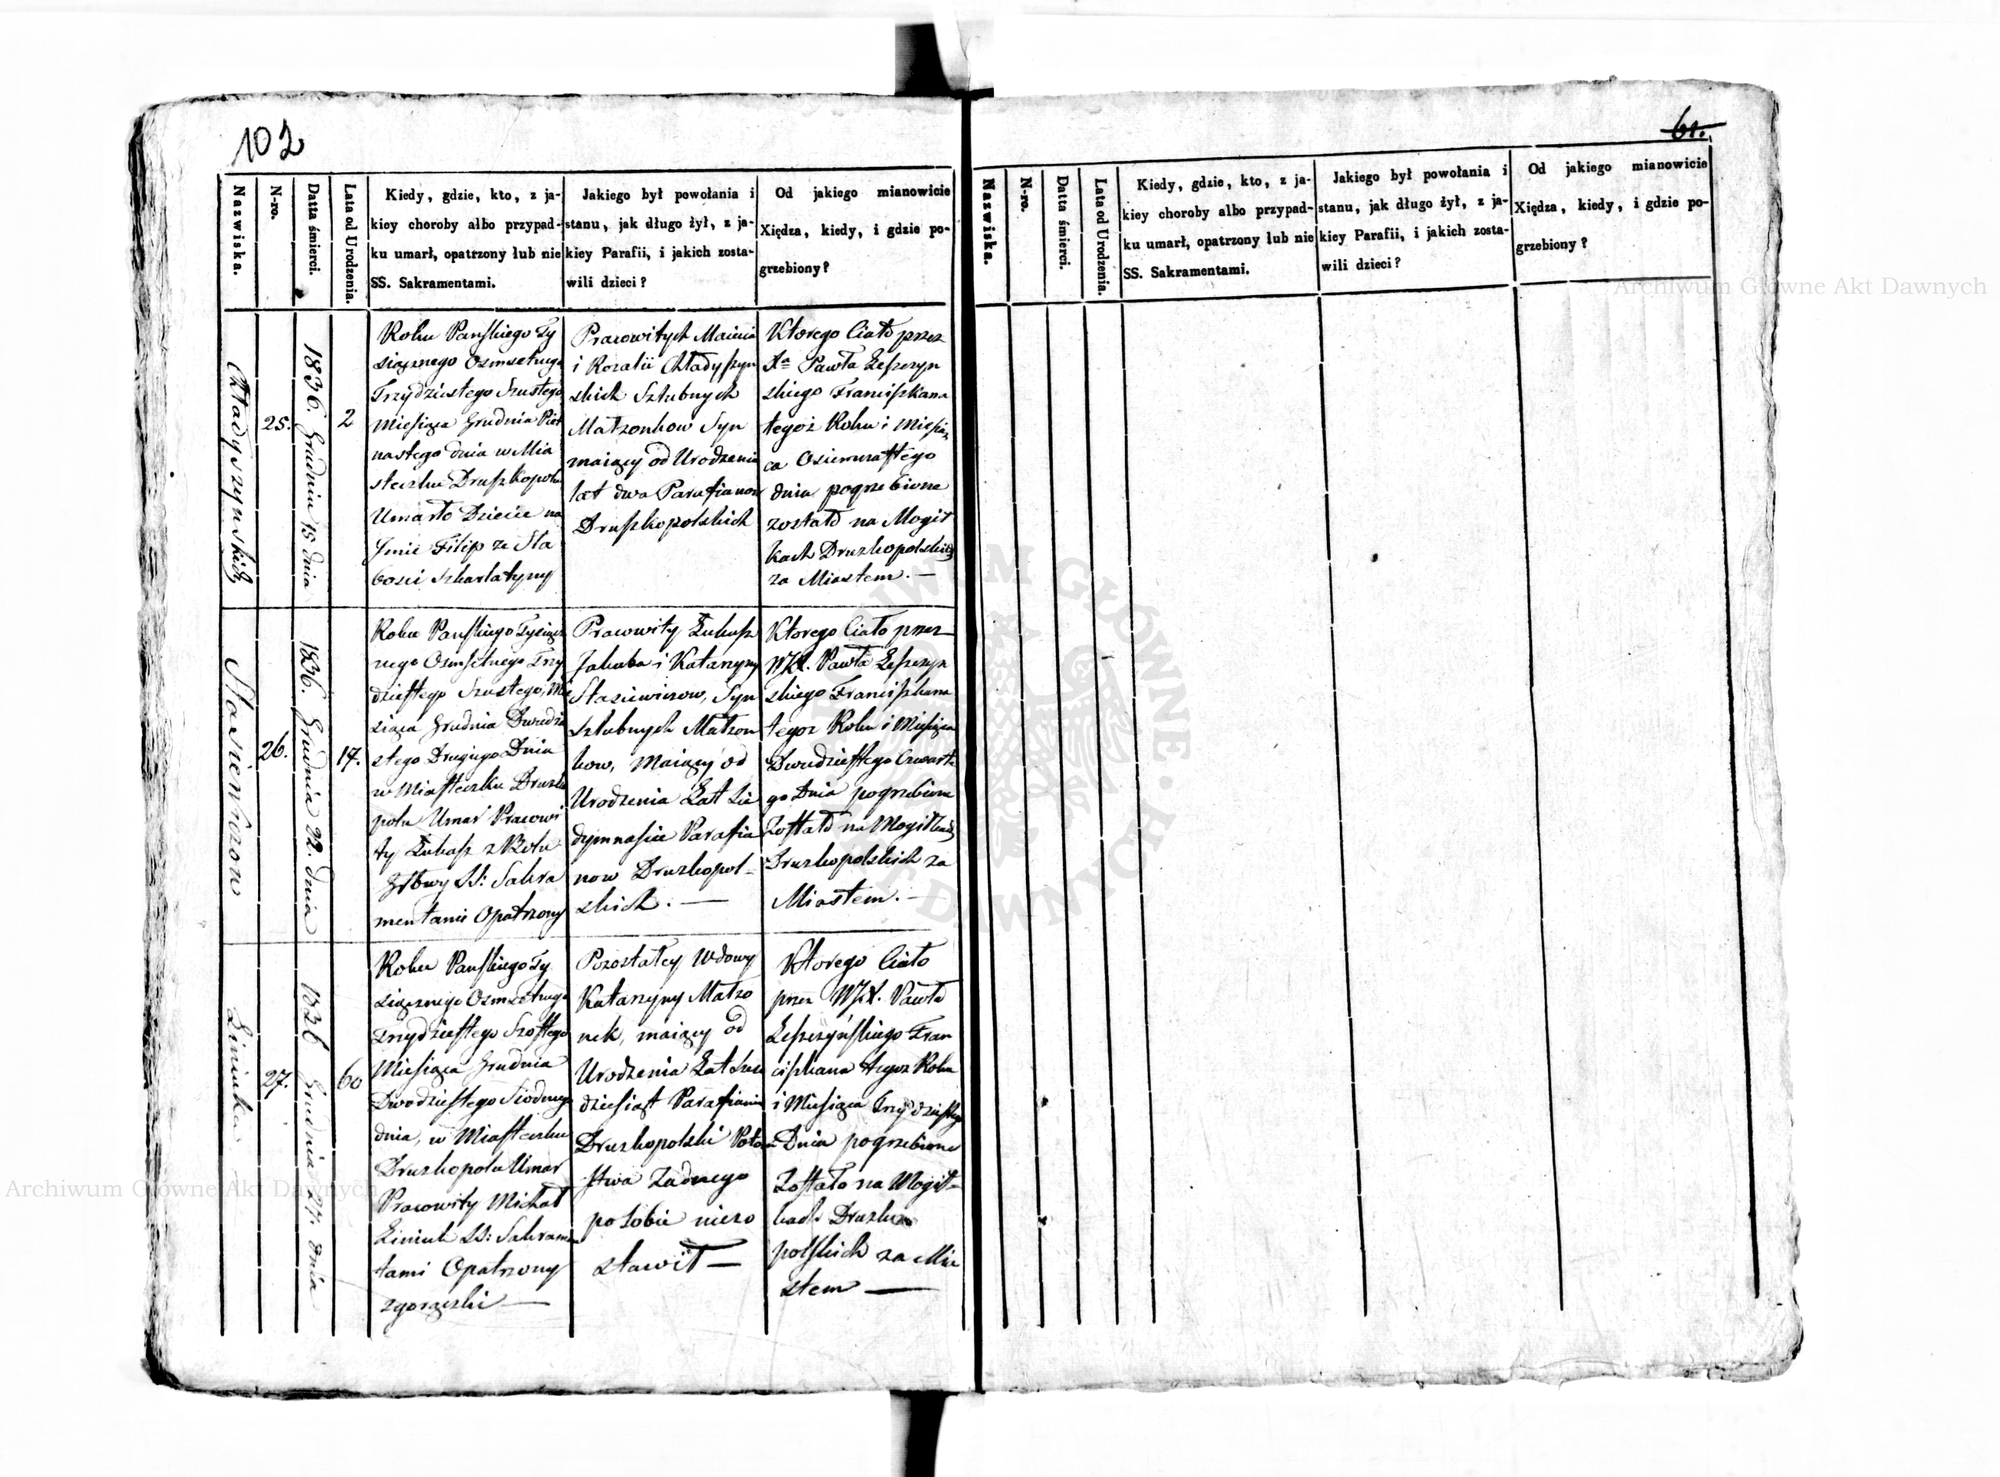 102
Nazwiska.
N-ro.
Datta śmierci.
Lata od Urodzenia.
Kiedy, gdzie, kto, z ja-
kiey choroby albo przypad-
ku umarł, opatrzony lub nie
SS. Sakramentami.
Jakiego był powołania i
stanu, jak długo żył, z ja-
kiey Parafii, i jakich zosta-
wili dzieci?
Od jakiego mianowicie
Xiędza, kiedy, i gdzie po-
grzebiony?
25.
1836. Grudnia 15 dnia
2
Roku Panskiego Ty
siącznego Osmsetnego
Trzydziestego Szustego
Miesiąca Grudnia Piet
nastego dnia w Mia
steczku Druszkopolu
Umarło Dziecie na
Jmie Filip ze Sła
bosci Szkarlatyny
Pracowitych Macieia
i Rozalii
skich Szlubnych
Małzonkow Syn
maiący od Urodzenia
lat dwa Parafianow
Druszkopolskich
Ktorego Ciało przez
Xa Pawła Leszczyn
skiego Franciszkana
tegoż Roku i Miesią
ca Osiemnastego
dnia pogrzebione
zostało na Mogił
kach Druzkopolskich
za Miastem. —
Stasiewiczow
26.
1836. Grudnia 22. dnia
17.
Roku Panskiego Tysiącz
nego Osmsetnego Trzy
dziestego Szustego, Mie
siąca Grudnia Dwudzie
stego Drugiego Dnia
w Miasteczku Druzko
polu Umar Pracowi
ty Łukasz z Bolu
Głowy SS: Sakra
mentami Opatrzony
Pracowity Łukasz
Jakuba i Katarzyny
Stasiewiczow, Syn
Szlubnych Małzon
kow, Maiący od
Urodzenia Lat Sie
dymnascie Parafia
now Druzkopol-
skich. —
Ktorego Ciało przez
WJX. Pawła Leszczyn
skiego Franciszkana
tegoz Roku i Miesiąca
Dwudziestego Czwarte
go Dnia pogrzebione
Zostało na Mogiłkach
Druzkopolskich za
Miastem. —
Liniuka
27.
1836 Grudnia 27. dnia
60
Roku Panskiego Ty
siącznego Osmsetnego
Trzydziestego Szostego
Miesiąca Grudnia
Dwudziestego Siodmego
dnia, w Miasteczku
Druzkopolu Umar
Pracowity Michał
Liniuk SS: Sakramen
tami Opatrzony
z gorączki —
Pozostałey Wdowy
Katarzyny Małzo
nek, maiący od
Urodzenia Lat Szes
dziesiąt Parafianin
Druzkopolski Potom
stwa Zadnego
po sobie niezo
stawił —
Ktorego Ciało
przez WJX. Pawła
Leszczyńskiego Fran
ciszkana tegoz Roku
i Miesiąca Trzydziestego
Dnia pogrzebione
Zostało na Mogił-
kach Druzko
polskich za Mia
stem —
61.
Nazwiska.
N-ro.
Datta śmierci.
Lata od Urodzenia.
Kiedy, gdzie, kto, z ja-
kiey choroby albo przypad-
ku umarł, opatrzony lub nie
SS. Sakramentami.
Jakiego był powołania i
stanu, jak długo żył, z ja-
kiey Parafii, i jakich zosta-
wili dzieci?
Od jakiego mianowicie
Xiędza, kiedy, i gdzie po-
grzebiony?
Archiwum Główne Akt Dawnych
Archiwum Główne Akt Dawnych
ARCHIWUM GŁÓWNE AKT DAWNYCH